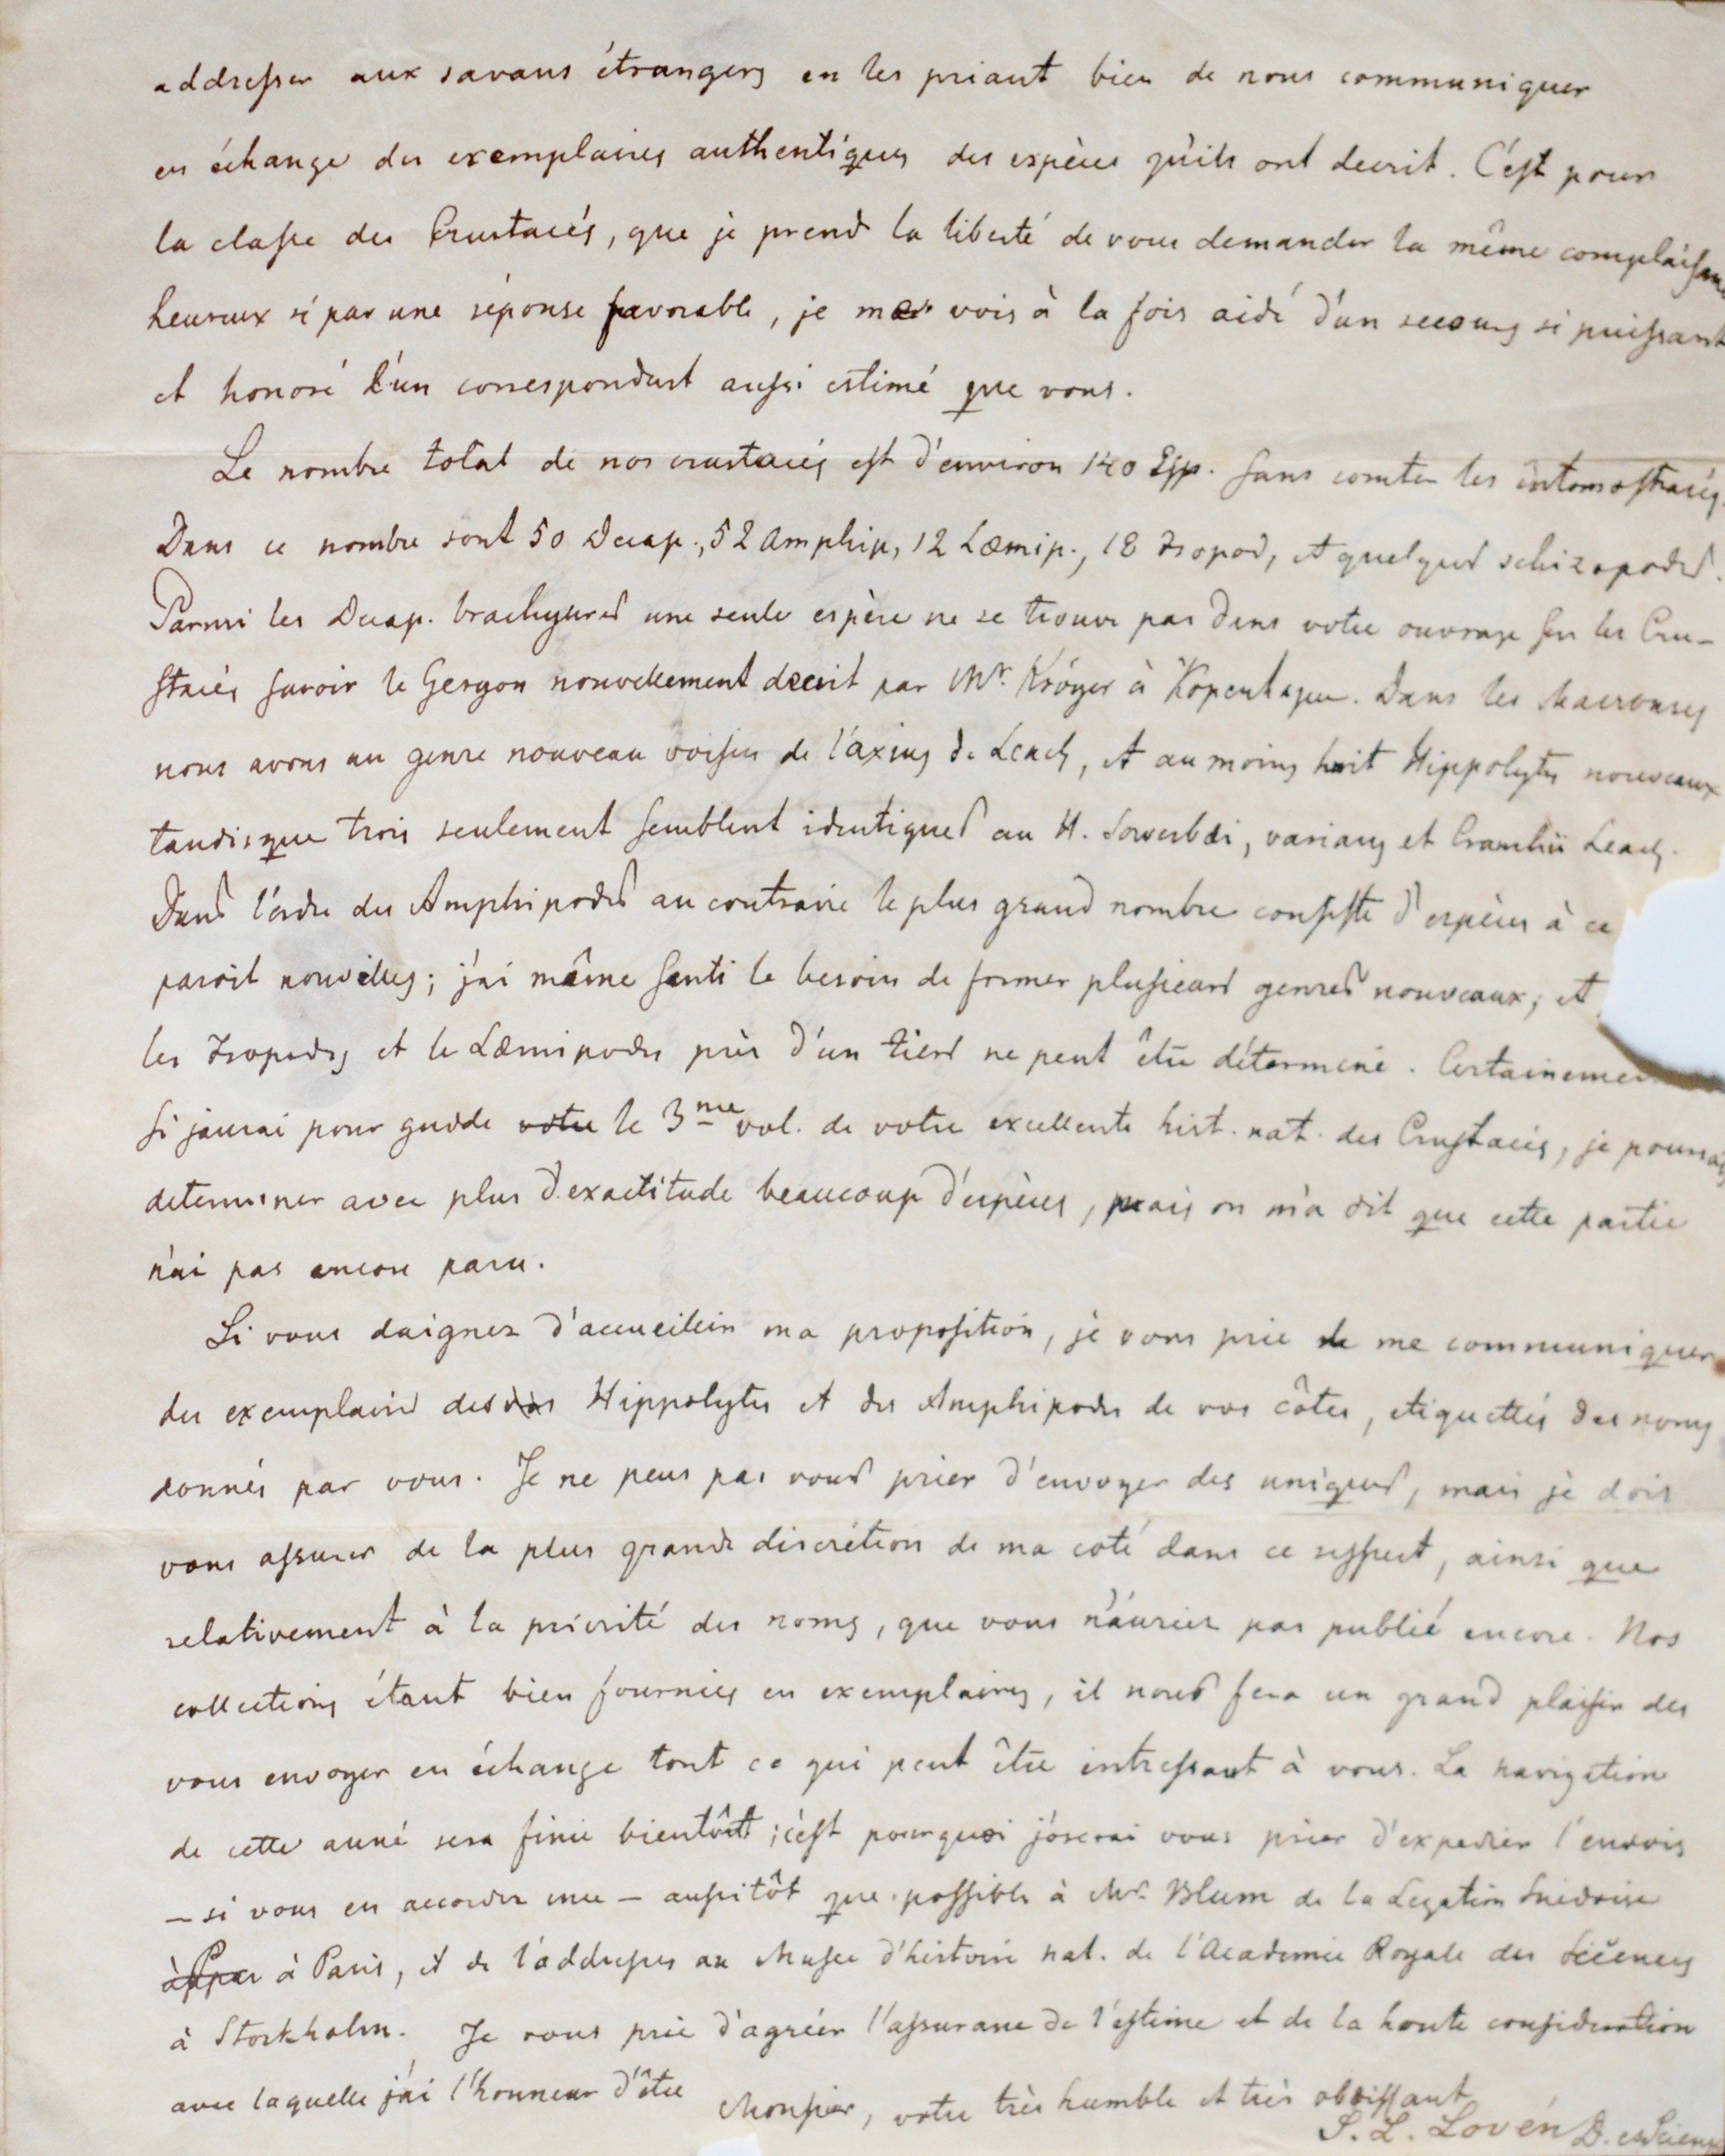 addresser aux savans étrangers en les priant bien de nous communiquer
en échange des exemplaires authentiques des espèces qu'ils ont decrit. C'est pour
la classe des Crustacés, que je prend la liberté de vous demander la même complaisan
heureux si par une réponse favorable, je me vois à la fois aidé d'un secours si puissant
et honoré d'un correspondant aussi estimé que vous.
Le nombre total de nos crustacés est d'environ 140 Esp. sans comter les entomostracés.
Dans ce nombre sont 50 Decap., 52 Amphip, 12 Læmip., 18 Isopod, et quelques schizopodes.
Parmi les Decap. brachyures une seule espèce ne se trouve pas dans votre ouvrage sur les Cru-
stacés savoir le Geryon nouvellement decrit par Mr. Kröyer à Kopenhague. Dans les Macroures
nous avons un genre nouveau voisin de l'axius de Leach, et au moins huit Hippolytes nouveaux
tandisque trois seulement semblent identiques au H. Sowerbæi, varians et Cranchii Leach.
Dans l'ordre des Amphipodes au contraire le plus grand nombre consiste d'espèces à ce
paroit nouvelles; j'ai même senti le besoin de former plusieurs genres nouveaux; et
les Isopodes et le Læmipodes près d'un tiers ne peut être déterminé. Certainemen
si jaurai pour guide votre le 3me vol. de votre excellente hist. nat. des Crustacés, je pourrai
determiner avec plus d'exactitude beaucoup d'espèces, mais on m'a dit que cette partie
n'ai pas encore paru.
Si vous daignez d'accueillir ma proposition, je vous prie de me communiquer
des exemplaires des Hippolytes et des Amphipodes de vos côtes, etiquettés des noms
donnés par vous. Je ne peus pas vous prier d'envoyer des uniques, mais je dois
vous assurer de la plus grande discrétion de ma coté dans ce respect, ainsi que
relativement à la priorité des noms, que vous n'auriez pas publié encore. Nos
collections étant bien fournies en exemplaires, il nous fera un grand plaisir des
vous envoyer en échange tout ce qui peut être intressant à vous. La navigation
de cette anné sera finie bientôt; c'est pourquoi j'oserai vous prier d'expedier l'envois
– si vous en accordez une – aussitôt que possible à Mr. Blum de la Legation Suédoise
à Paris, et de l'addresses au Musee d'histoire nat. de l'Academie Royale des Sciences
à Stockholm. Je vous prie d'agréer l'assurance de l'estime et de la haute consideration
avec laquelle j'ai l'honneur d'être Monsieur, votre très humble et très obeissant
S. L. Lovén D. es Scienc